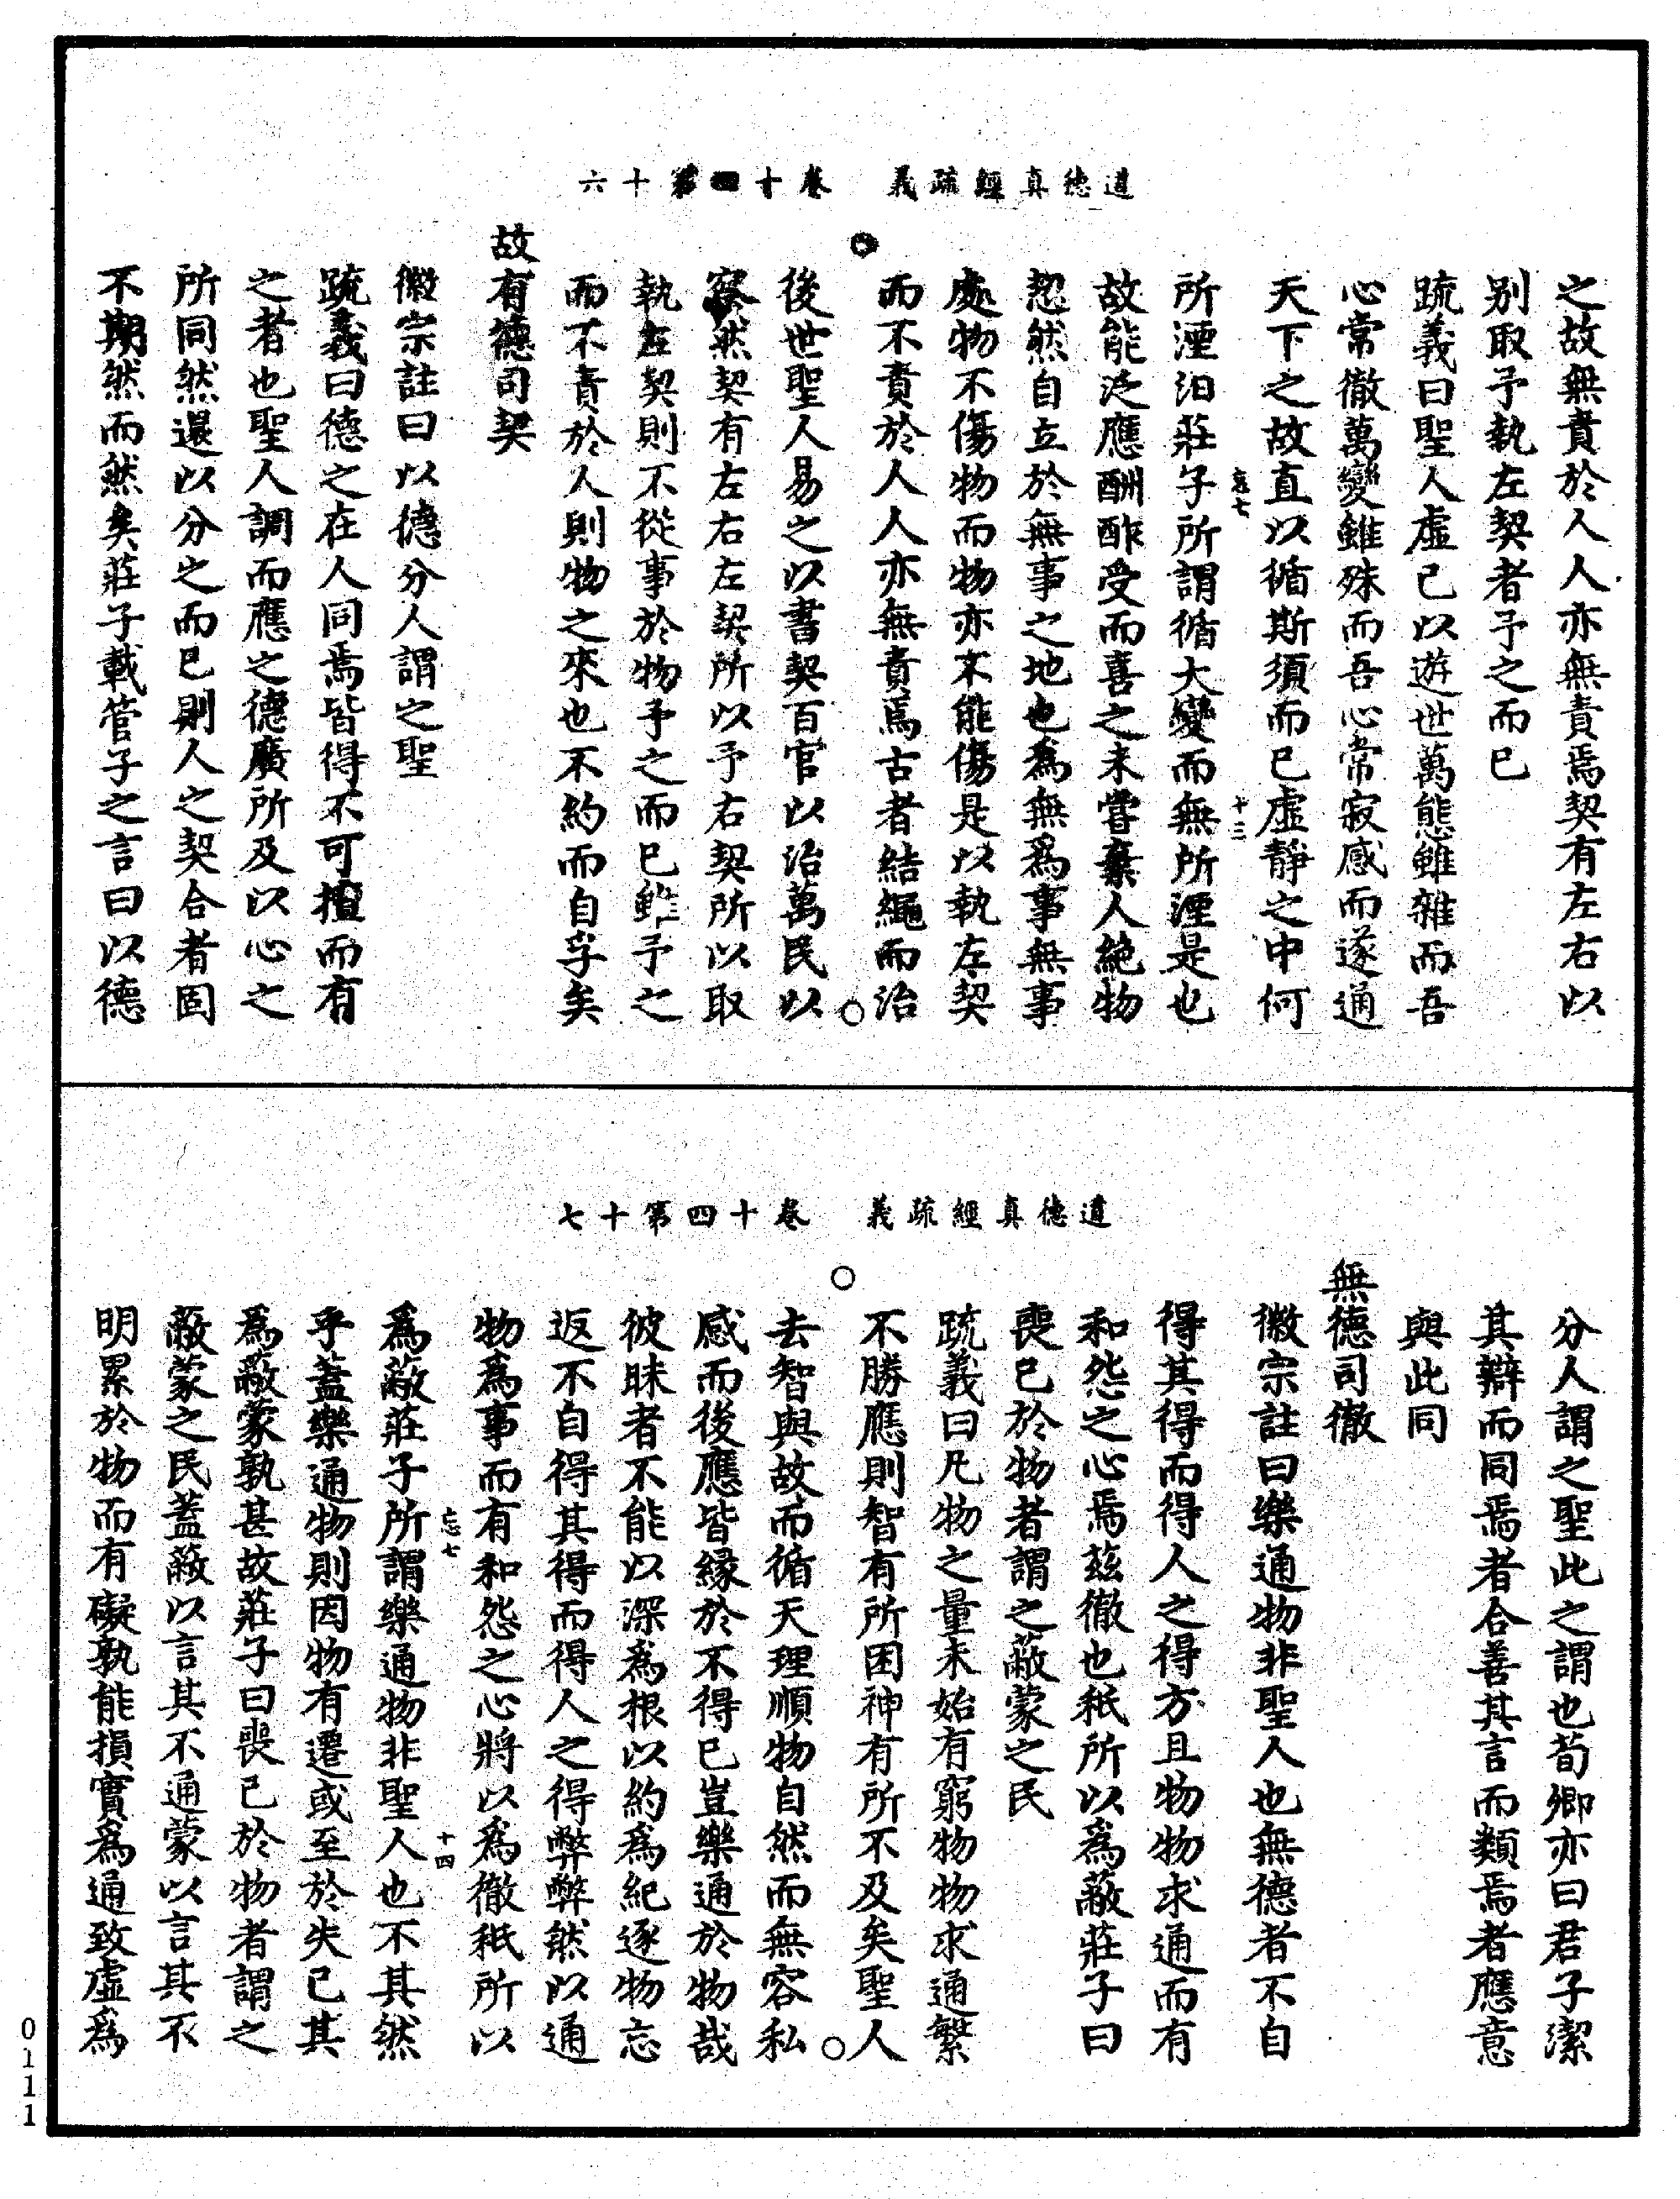 道德真經疏義　卷十四第十六
之故無責於人人亦無責焉契有左右以
別取予執左契者予之而已
疏義曰聖人虛己以遊世萬態雖雜而吾
心常徹萬變雖殊而吾心常寂感而遂通
天下之故直以循斯須而已虛靜之中何
忘七　十三
所湮汨莊子所謂循大變而無所湮是也
故能泛應酬酢受而喜之未嘗棄人絕物
惣然自立於無事之地也為無為事無事
處物不傷物而物亦不能傷是以執左契
而不責於人人亦無責焉古者結繩而治
後世聖人易之以書契百官以治萬民以
察然契有左右左契所以予右契所以取
執左契則不從事於物予之而已雖予之
而不責於人則物之來也不約而自孚矣
故有德司契
徽宗註曰以德分人謂之聖
疏義曰德之在人同焉皆得不可擅而有
之者也聖人調而應之德廣所及以心之
所同然還以分之而已則人之契合者固
不期然而然矣莊子載管子之言曰以德
道德真經疏義　卷十四第十七
分人謂之聖此之謂也荀卿亦曰君子潔
其辯而同焉者合善其言而類焉者應意
與此同
無德司徹
徽宗註曰樂通物非聖人也無德者不自
得其得而得人之得方且物物求通而有
和怨之心焉茲徹也秖所以為蔽莊子曰
喪己於物者謂之蔽蒙之民
疏義曰凡物之量未始有窮物物求通繁
不勝應則智有所困神有所不及矣聖人
去智與故而循天理順物自然而無容私
感而後應皆緣於不得已豈樂通於物哉
彼昧者不能以深為根以約為紀逐物忘
返不自得其得而得人之得弊弊然以通
物為事而有和怨之心將以為徹秖所以
忘七　十四
為蔽莊子所謂樂通物非聖人也不其然
乎蓋樂通物則因物有遷或至於失己其
為蔽蒙孰甚故莊子曰喪己於物者謂之
蔽蒙之民蓋蔽以言其不通蒙以言其不
明累於物而有礙孰能損實為通致虛為
0111